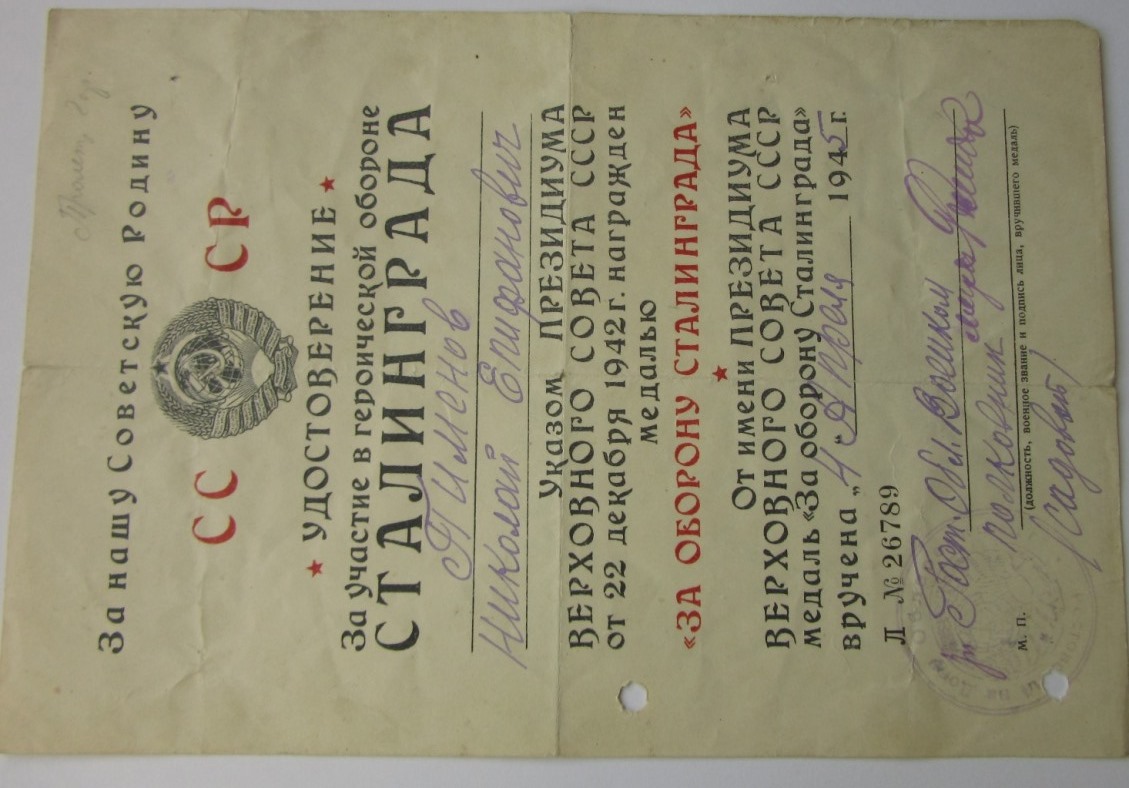 За нашу Советскую Родину
СС СР
УДОСТОВЕРЕНИЕ
За участие в героической обороне
СТАЛИНГРАДА
Пименов
Николай Епифанович
Указом ПРЕЗИДИУМА
ВЕРХОВНОГО СОВЕТА СССР
от 22 декабря 1942 г. награжден
медалью
«ЗА ОБОРОНУ СТАЛИНГРАДА»
От имени ПРЕЗИДИУМА
ВЕРХОВНОГО СОВЕТА СССР
медаль «За оборону Сталинграда»
вручена „4“ Апреля 1945 г.
Л № 26789
Рост. Обл. Военком
полковник
(должность, военное звание и подпись лица, вручившего медаль)
М. П.